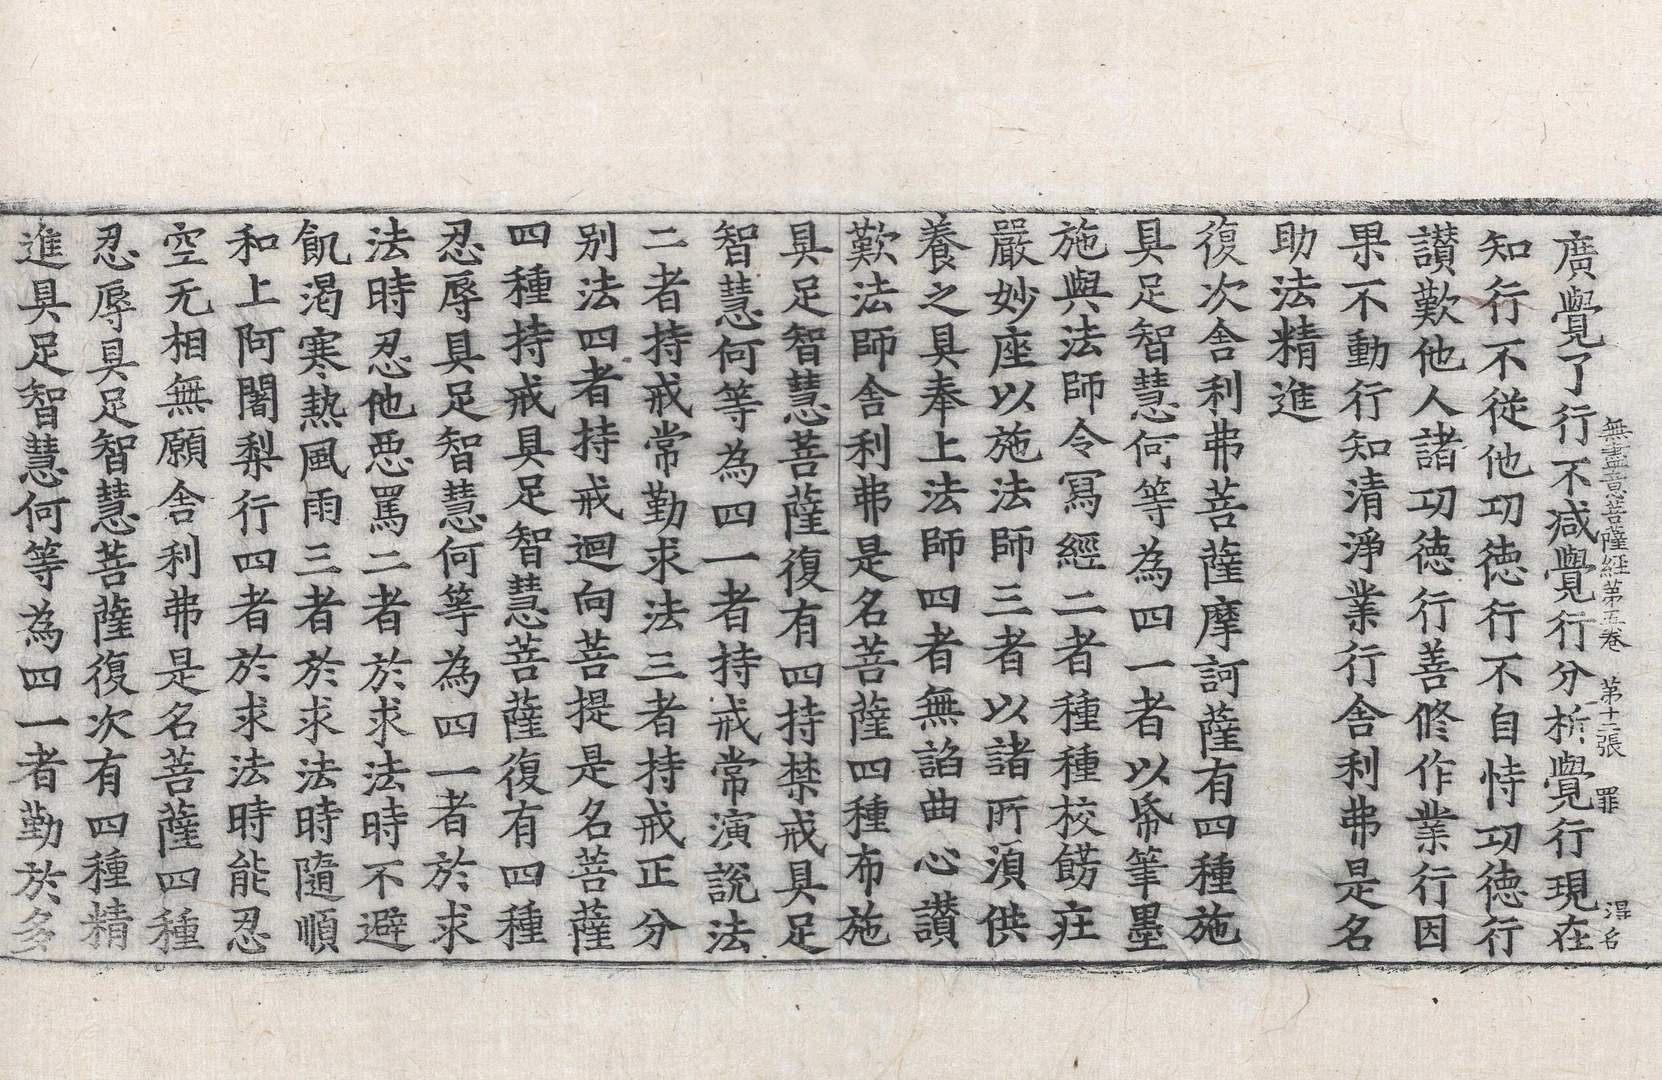 無盡意菩薩經第五卷 第十二張 罪 得名
廣覺了行不减覺行分析覺行現在
知行不從他功德行不自恃功德行
讃歎他人諸功德行善脩作業行因
果不動行知清淨業行舍利弗是名
助法精進
復次舍利弗菩薩摩訶薩有四種施
具足智慧何等為四一者以帋筆墨
施與法師令冩經二者種種校餝荘
嚴妙座以施法師三者以諸所湏供
養之具奉上法師四者無諂曲心讃
歎法師舍利弗是名菩薩四種布施
具足智慧菩薩復有四持禁戒具足
智慧何等為四一者持戒常演說法
二者持戒常勤求法三者持戒正分
别法四者持戒迴向菩提是名菩薩
四種持戒具足智慧菩薩復有四種
忍辱具足智慧何等為四一者於求
法時忍他惡罵二者於求法時不避
飢渴寒熱風雨三者於求法時隨順
和上阿闍梨行四者於求法時能忍
空无相無願舍利弗是名菩薩四種
忍辱具足智慧菩薩復次有四種精
進具足智慧何等為四一者勤於多